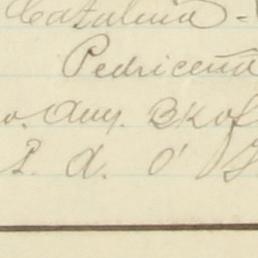 Catalina -
Pedriceña
o. Aug. Bk of
P. A. O'